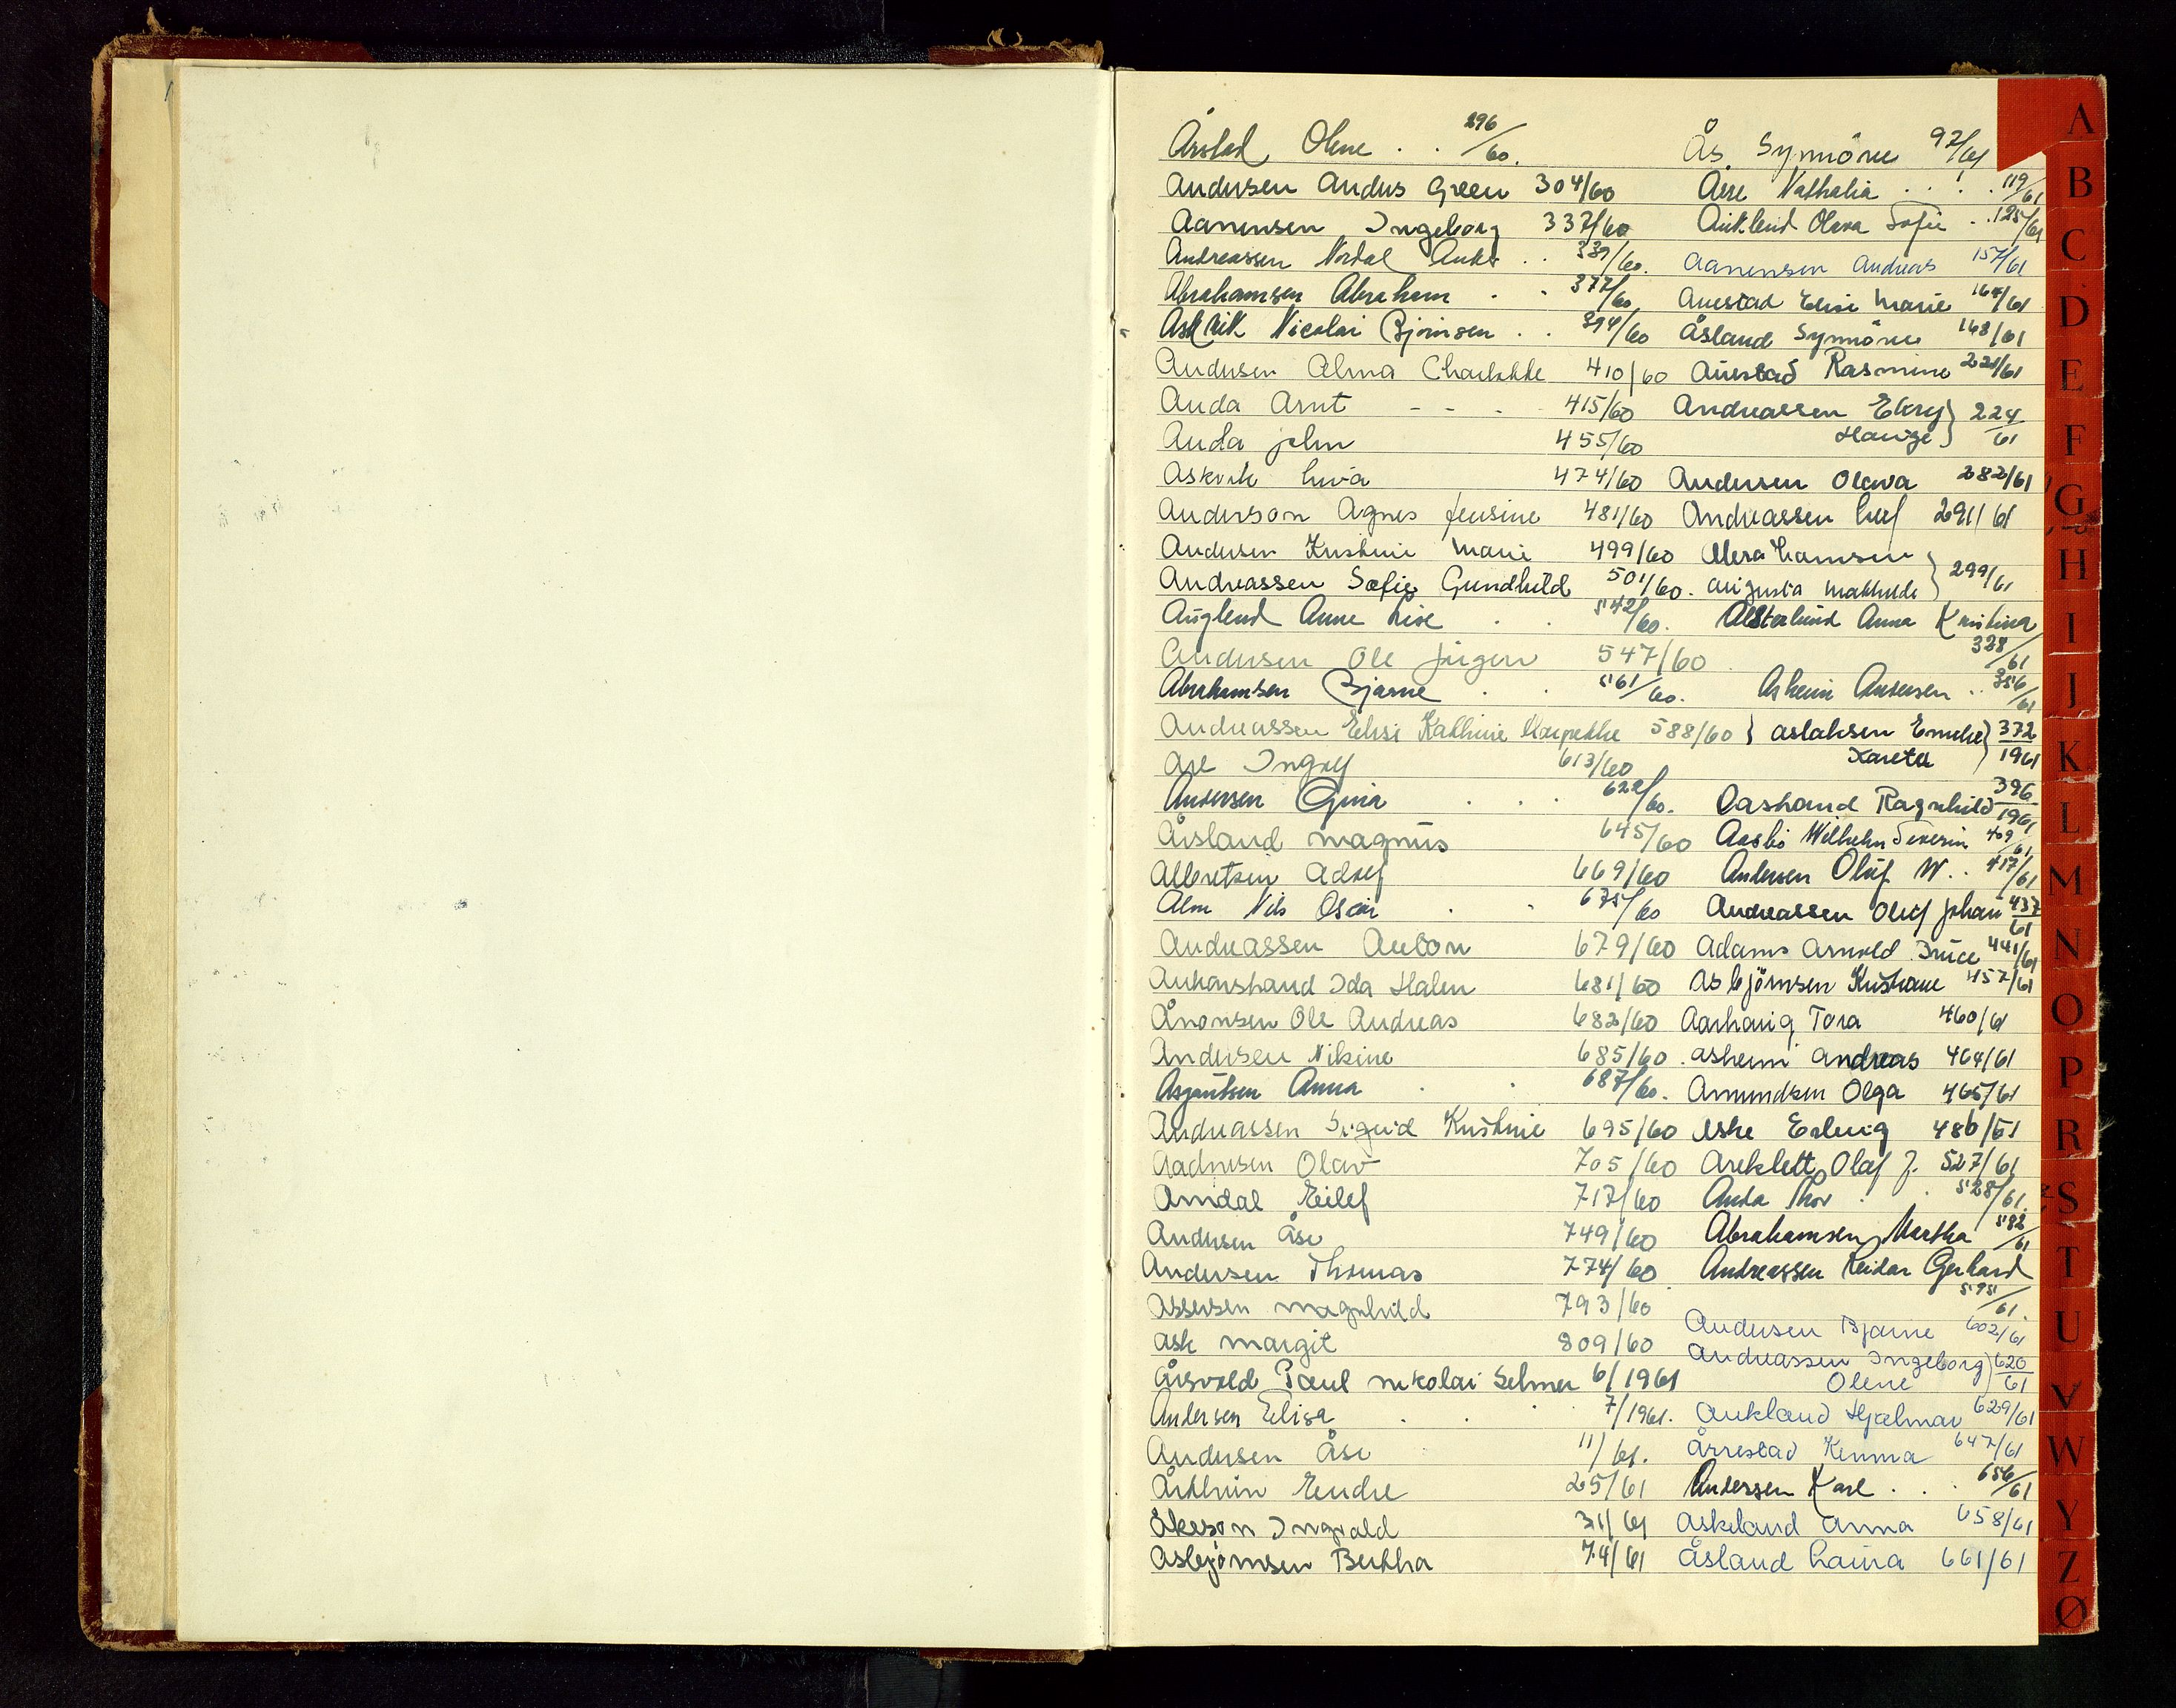 Årstad Olene . . 296/60.
Andersen Andus Green 304/60
Aanensen Ingeborg 337/60
Andreassen Nordal Anker . . 339/60.
Abrahamsen Abraham . . 377/60
Askvik Nicolai Bjørnsen . . 394/60
Andersen Alma Charlotte 410/60
Anda Arnt - - - 415/60
Anda John 455/60
Askvik Livia 474/60
Anderson Agnes Jensine 481/60
Andersen Kristine Marie 499/60
Andreassen Sofie Gundhild 501/60.
Auglend Anne Lise . . 542/60.
Andersen Ole Jørgen 547/60
Abrahamsen Bjarne . . 561/60.
Andreassen Elise Kathrine Margrethe 588/60
Ase Ingolf 613/60
Andersen Gina . . . 622/60.
Årsland Magnus 645/60
Albretsen Adolf 669/60
Alm Nils Oscar . . 675/60
Andreassen Anton 679/60
Ida Halen 681/60
Ånonsen Ole Andreas 682/60
Andersen Nikine 685/60.
Asgautsen Anna . . 687/60.
Andreassen Sigrid Kristine 695/60
Aadnesen Olav 705/60
Amdal Eilef 717/60
Andersen Åse 749/60
Andersen Thomas 774/60
Assersen Magnhild 793/60
Ask Margit 809/60
Årsvold Paul Nikolai Selmer 6/1961
Andersen Elisa . . . 7/1961.
Andersen Åse 11/61.
Årthun Endre 25/61
Åkeson Ingvald 31/61
Asbjørnsen Bertha 74/61
Ås Synnöve 92/61
Åse Nathalia . . . . 119/61
Aukland Olava Sofie . . 125/61
Aanensen Andreas 157/61
Auestad Elise Marie 167/61
Åsland Synnöve 168/61
Auestad Rasmine 221/61
Andreassen Elery } 224/61
Hauge
Andersen Olava 282/61
Andreassen Leif 291/61
Abrahamsen } 299/61
Augusta Mathilde
Alsterlund Anna Kristina
328/61
Asheim Andersen . . 356/61
Aslaksen Emelie } 372/1961
Karete
Aasland Ragnhild 396/1961
Aasbø Wilhelm Severin 409/61
Andersen Oluf W. . . 417/61
Andreassen Oluf Johan 437/61
Adams Arnold Bruce 441/61
Asbjörnsen Kristiane 457/61
Aarhaug Tora 460/61
Asheim Andreas 464/61
Amundsen Olga 465/61
Aske Erling 486/61
Areklett Olaf J. 527/61
Anda Thor . . 528/61.
Abrahamsen Martha 582/61
Andreassen Reidar Gerhard
595/61.
Andersen Bjarne 602/61
Andreassen Ingeborg } 620/61
Olene
Aukland Hjalmar 629/61
Årrestad Kenma 647/61
Anderssen Karl . . . 656/61
Askeland Anna 658/61
Åsland Laura 661/61
A
B
C
D
E
F
G
H
I
J
K
L
M
N
O
P
R
S
T
U
V
W
Y
Z
Ø